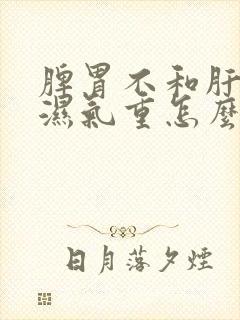 脾胃不和肝
濕氣重怎麼
日月落夕煙